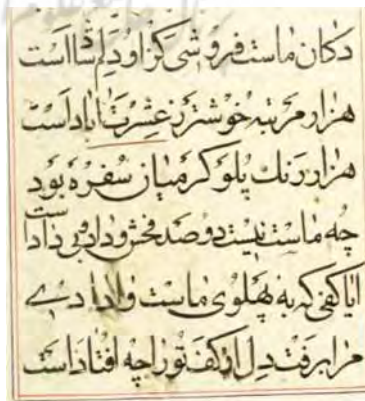 دکان ماست فروشی کزاو دلم شاد است
هزار مرتبه خوشتر ز عشرت آباد است
هزار رنك پلو کر میان سفره بود
چه ماست نیست دوصد فحش و داد بی داد است
ایا کفی که به پهلوی ماست ولادادی
مرا برفت دل از کف تورا چه افتاداست